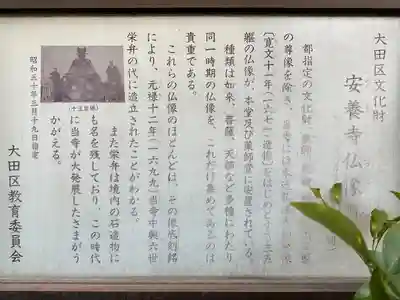 大田区文化財
安養寺仏像
都指定の文化財
の尊像を除き、当寺には
〔寛文十一年(一六七一)造像〕をはじめとする
軀の仏像が、本堂及び薬師堂に安置されている。
種類は如来、菩薩、天部など多種にわたり
同一時期の仏像を、これだけ集めてあるのは
貴重である。
これらの仏像のほとんどは、その像底刻銘
により、元禄十二年(一六九九)当寺中興六世
栄弁の代に造立されたことがわかる。
また栄弁は境内の石造物に
も名を残しており、この時代
に当寺が大発展したさまがう
かがえる。
(十王坐像)
昭和五十年三月十九日指定
大田区教育委員会